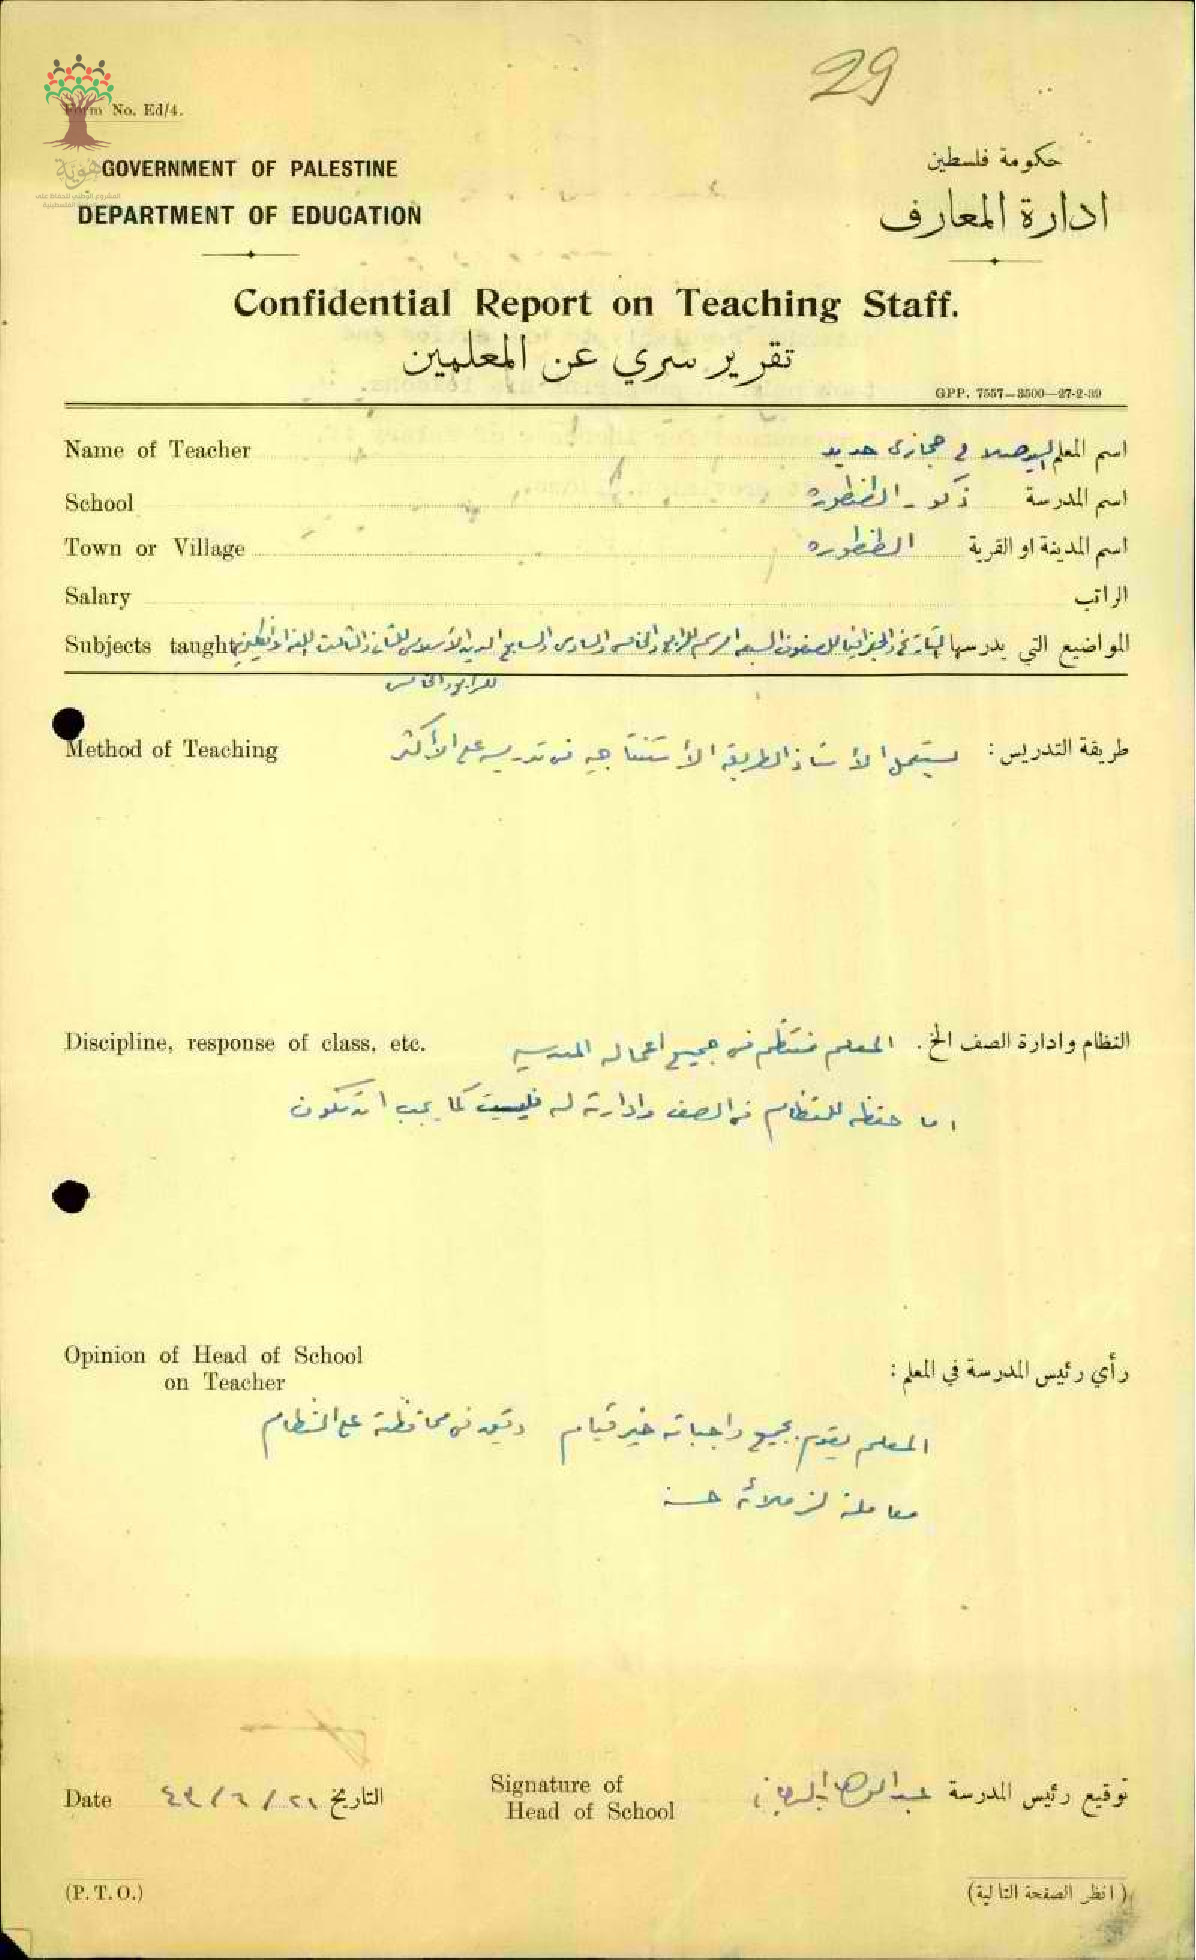 29
Form No. Ed/4.
هوية
GOVERNMENT OF PALESTINE
DEPARTMENT OF EDUCATION
حكومة فلسطين
ادارة المعارف
Confidential Report on Teaching Staff.
تقرير سري عن المعلمين
GPP. 7557—3500—27-2-39
Name of Teacher حديد اسم المعلم
School ذكور الطنطوره اسم المدرسة
Town or Village الطنطوره اسم المدينة او القرية
Salary الراتب
Subjects taught المواضيع التي يدرسها التاريخ والجغرافيا للصفوف السبعه الرسم للرابع والخامس والسادس والسابع الدين الاسلامي للثاني والثالث
للرابع والخامس
Method of Teaching طريقة التدريس : يستعمل الأستاذ الطريقة الأستنتاجيه في تدريسه على الأكثر
Discipline, response of class, etc. النظام وادارة الصف الخ . المعلم منتظم في جميع اعماله المدرسيه
اما حفظه للنظام في الصف وادارته له فليست كما يجب ان تكون
Opinion of Head of School
on Teacher
رأي رئيس المدرسة في المعلم :
المعلم يقوم بجميع واجباته خير قيام في محافظته على النظام
معاملته لزملائه حسنه
Date ٢١ / ٦ / ٤٣ التاريخ
Signature of
Head of School
توقيع رئيس المدرسة عبد الوهاب
(P. T. O.)
( انظر الصفحة التالية)